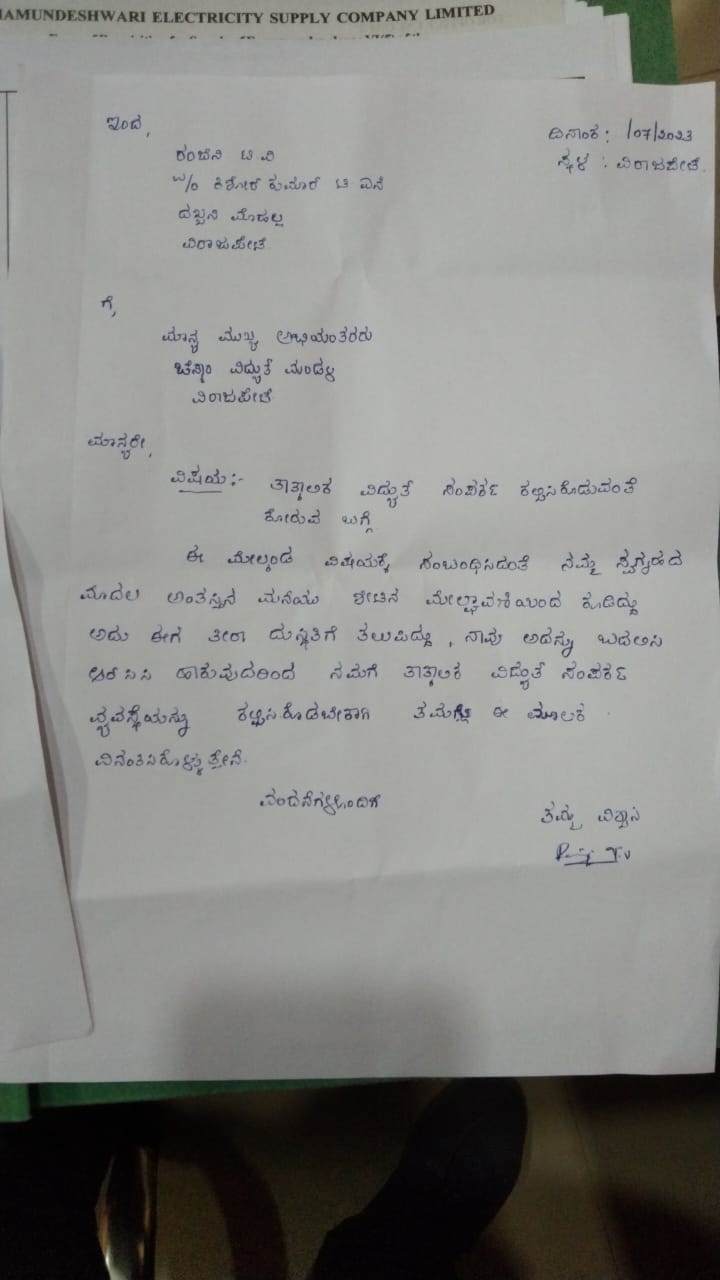 HAMUNDESHWARI ELECTRICITY SUPPLY COMPANY LIMITED
ಇಂದ,
ದಿನಾಂಕ: /07/2023
ಸ್ಥಳ : ವಿರಾಜಪೇಟೆ.
ರಂಜಿನಿ ಟಿ ವಿ
W/o ಕಿಶೋರ್ ಕುಮಾರ್ ಟಿ ಎನ್
ವಿರಾಜಪೇಟೆ
ಗೆ,
ಮಾನ್ಯ ಮುಖ್ಯ ಅಭಿಯಂತರರು
ಚೆಸ್ಕಾಂ ವಿದ್ಯುತ್ ಮಂಡಳಿ
ವಿರಾಜಪೇಟೆ
ಮಾನ್ಯರೇ,
ವಿಷಯ:- ತಾತ್ಕಾಲಿಕ ವಿದ್ಯುತ್ ಸಂಪರ್ಕ ಕಲ್ಪಿಸಿಕೊಡುವಂತೆ
ಕೋರುವ ಬಗ್ಗೆ
ಈ ಮೇಲ್ಕಂಡ ವಿಷಯಕ್ಕೆ ಸಂಬಂಧಿಸಿದಂತೆ ನಮ್ಮ ಸ್ವಗೃಹದ
ಮೊದಲ ಅಂತಸ್ತಿನ ಮನೆಯು ಶೀಟಿನ ಮೇಲ್ಛಾವಣಿಯಿಂದ ಕೂಡಿದ್ದು
ಅದು ಈಗ ತೀರಾ ದುಸ್ಥಿತಿಗೆ ತಲುಪಿದ್ದು, ನಾವು ಅದನ್ನು ಬದಲಿಸಿ
ಆರ್ ಸಿಸಿ ಹಾಕುವುದರಿಂದ ನಮಗೆ ತಾತ್ಕಾಲಿಕ ವಿದ್ಯುತ್ ಸಂಪರ್ಕ
ವ್ಯವಸ್ಥೆಯನ್ನು ಕಲ್ಪಿಸಿಕೊಡಬೇಕಾಗಿ ತಮ್ಮಲ್ಲಿ ಈ ಮೂಲಕ
ವಿನಂತಿಸಿಕೊಳ್ಳುತ್ತೇನೆ.
ವಂದನೆಗಳೊಂದಿಗೆ
ತಮ್ಮ ವಿಶ್ವಾಸಿ
T.V